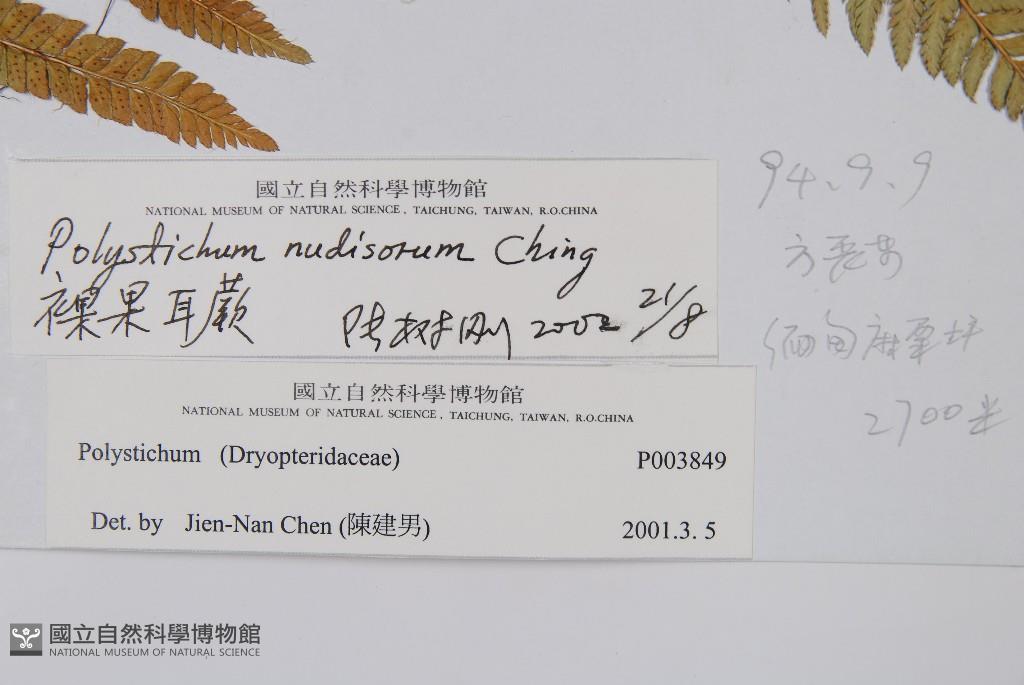 國立自然科學博物館
NATIONAL MUSEUM OF NATURAL SCIENCE, TAICHUNG, TAIWAN, R.O.CHINA
Polystichum nudisorum Ching
裸果耳蕨 陸樹剛 2002 21/8
國立自然科學博物館
NATIONAL MUSEUM OF NATURAL SCIENCE, TAICHUNG, TAIWAN, R.O.CHINA
Polystichum (Dryopteridaceae) P003849
Det. by Jien-Nan Chen (陳建男) 2001.3.5
94、9、9
方
缅甸麻栗坪
2700米
國立自然科學博物館
NATIONAL MUSEUM OF NATURAL SCIENCE